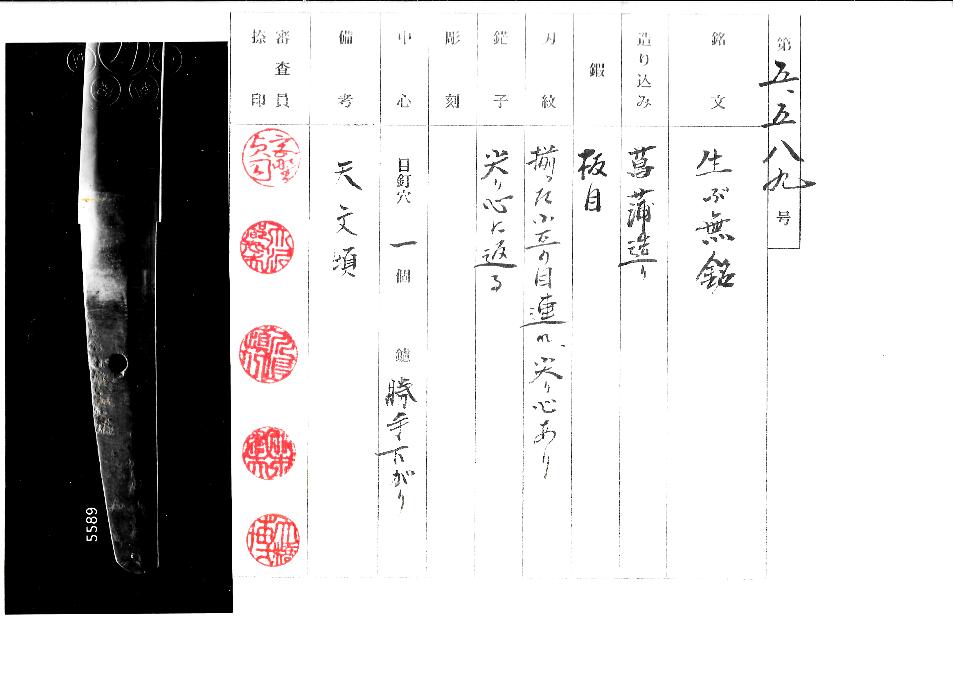 第五、五八九号
銘文 生ぶ無銘
造り込み 菖蒲造り
鍛 板目
刃紋 揃った小互の目連れ、尖り心あり
鋩子 尖り心に返る
彫刻
中心 目釘穴 一個 鑢 勝手下がり
備考 天文頃
審査員
捺印
5589